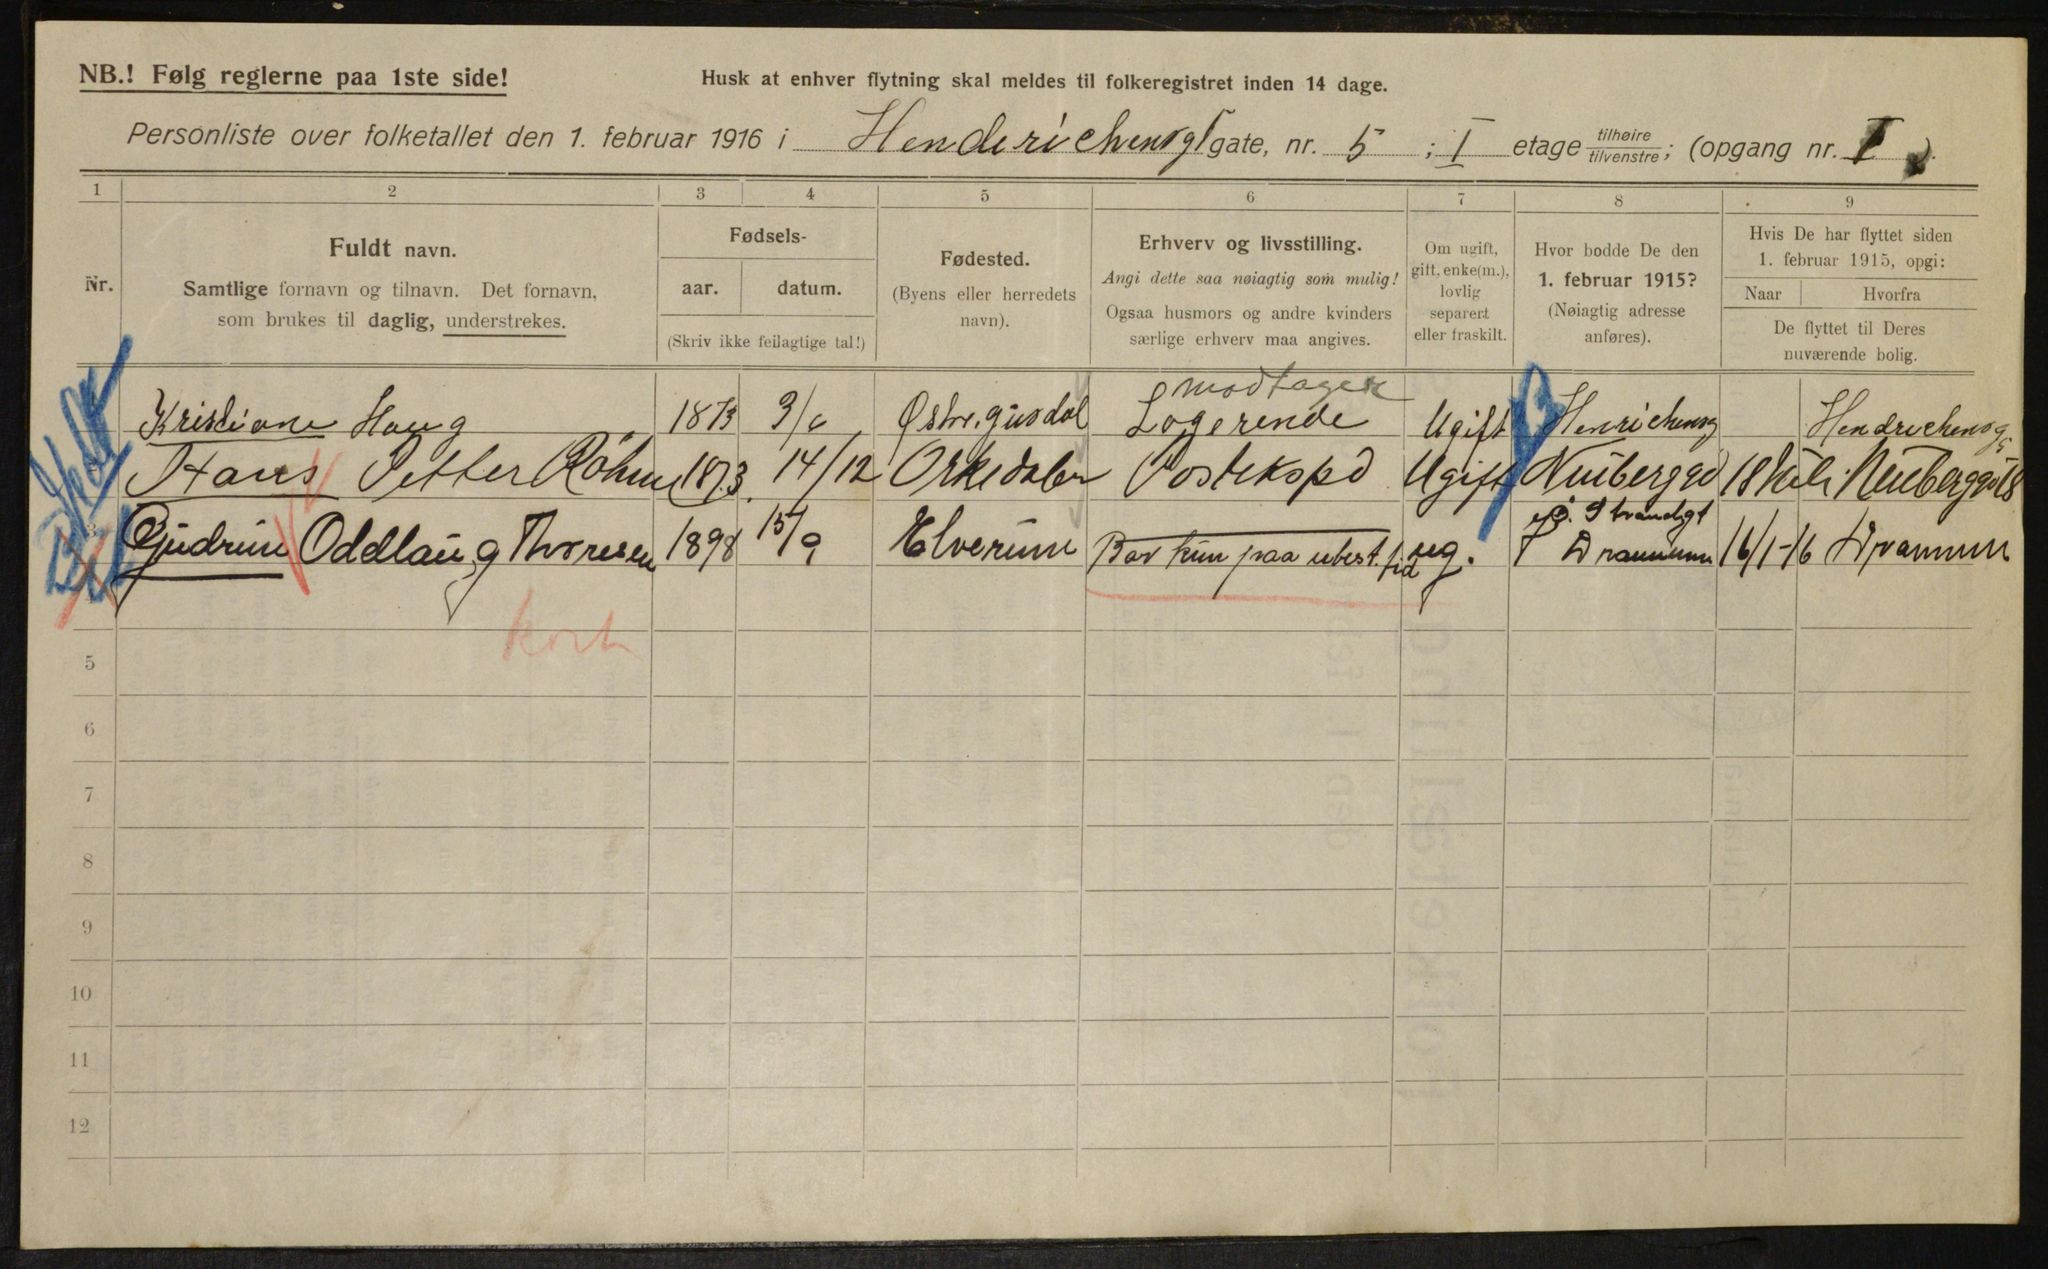 NB.! Følg reglerne paa 1ste side!
Husk at enhver flytning skal meldes til folkeregistret inden 14 dage.
Personliste over folketallet den 1. februar 1916 i Henderichensgt gate, nr. 5 ; I etage tilhøire/tilvenstre; (opgang nr. I ).
1 2 3 4 5 6 7 8 9
Nr.
Fuldt navn.
Samtlige fornavn og tilnavn. Det fornavn,
som brukes til daglig, understrekes.
Fødsels-
aar. datum.
(Skriv ikke feilagtige tal!)
Fødested.
(Byens eller herredets
navn).
Erhverv og livsstilling.
Angi dette saa nøiagtig som mulig!
Ogsaa husmors og andre kvinders
særlige erhverv maa angives.
Om ugift,
gift, enke(m.),
lovlig
separert
eller fraskilt.
Hvor bodde De den
1. februar 1915?
(Nøiagtig adresse
anføres).
Hvis De har flyttet siden
1. februar 1915, opgi:
Naar Hvorfra
De flyttet til Deres
nuværende bolig.
modtager
Kristiane Haug 1873 Østre. Gusdal Logerende Ugift Henrichensg Hendrichensg
Hans Petter Röhme 1873. 14/12 Orkedalen Postekspd Ugift Nuiberggd 18 Neuberggd 18
Strandgt
3 Gudrun Oddlaug Thoresen 1898 15/9 Elverum Bor kun paa ubest. tid ug. Drammen 16/1-16 Drammen
kort
5
6
7
8
9
10
11
12